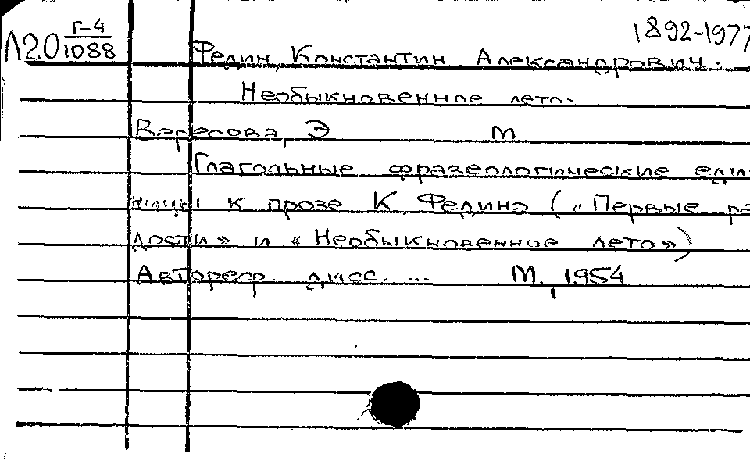 Л2.0 Г-4 1892-1977
1088 Федин, Константин Александрович.
Необыкновенное лето.
Э М
Глагольные фразеологические един
ицы к прозе К. Федина («Первые ра
дости» и «Необыкновенное лето»)
Автореф. дисс. ... М., 1954